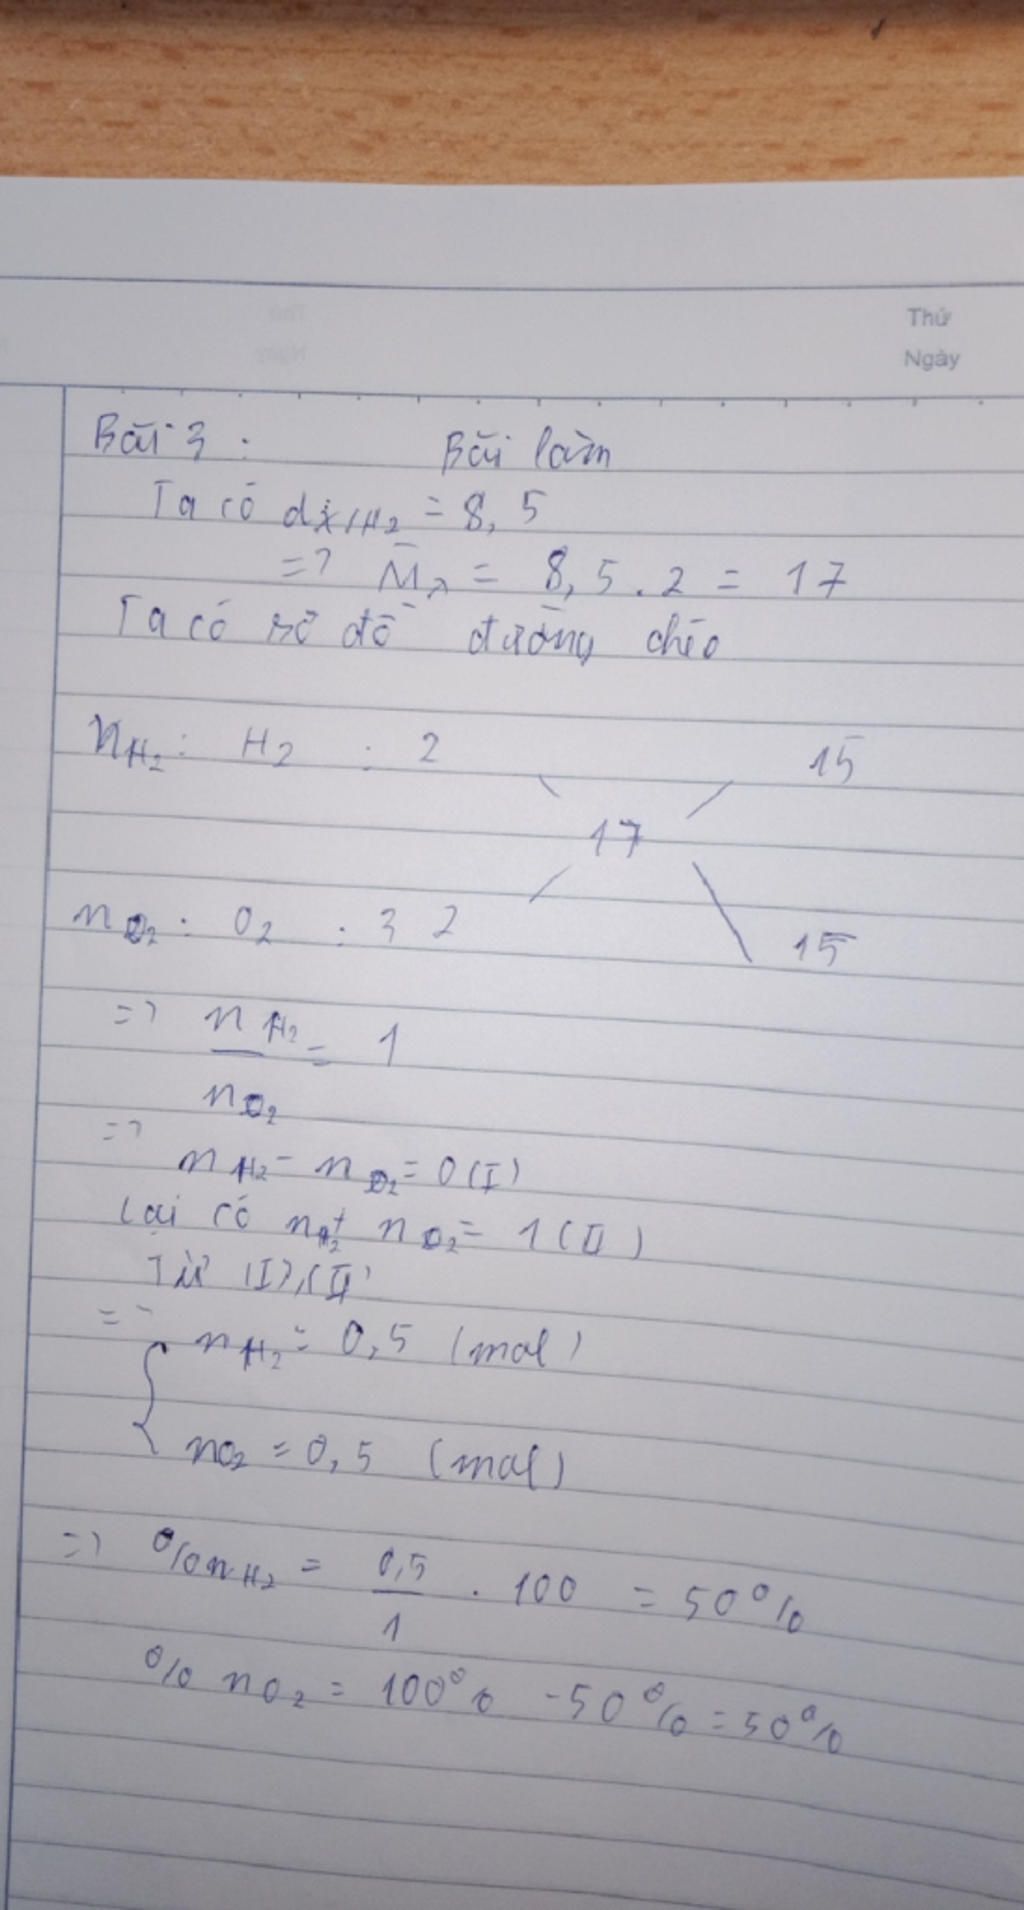 Thứ
Ngày
Bài 3 : Bài làm
Ta có dX/H2 = 8,5
=> M̄X = 8,5 . 2 = 17
Ta có sơ đồ đường chéo
nH2 : H2 : 2 15
17
nO2 : O2 : 32 15
=> nH2 = 1
nO2
=>
nH2 - nO2 = 0 (I)
Lại có nH2 + nO2 = 1 (II)
Từ (I), (II)
=> nH2 = 0,5 (mol)
nO2 = 0,5 (mol)
=> %nH2 = 0,5 . 100 = 50%
1
% nO2 = 100% - 50% = 50%